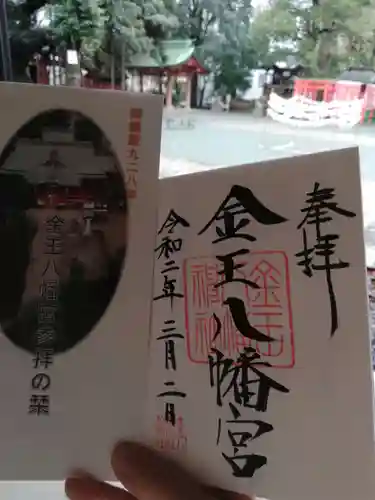 奉拝
金王八幡宮
令和二年三月二日
御鎮座九二八年
金王八幡宮参拝の栞